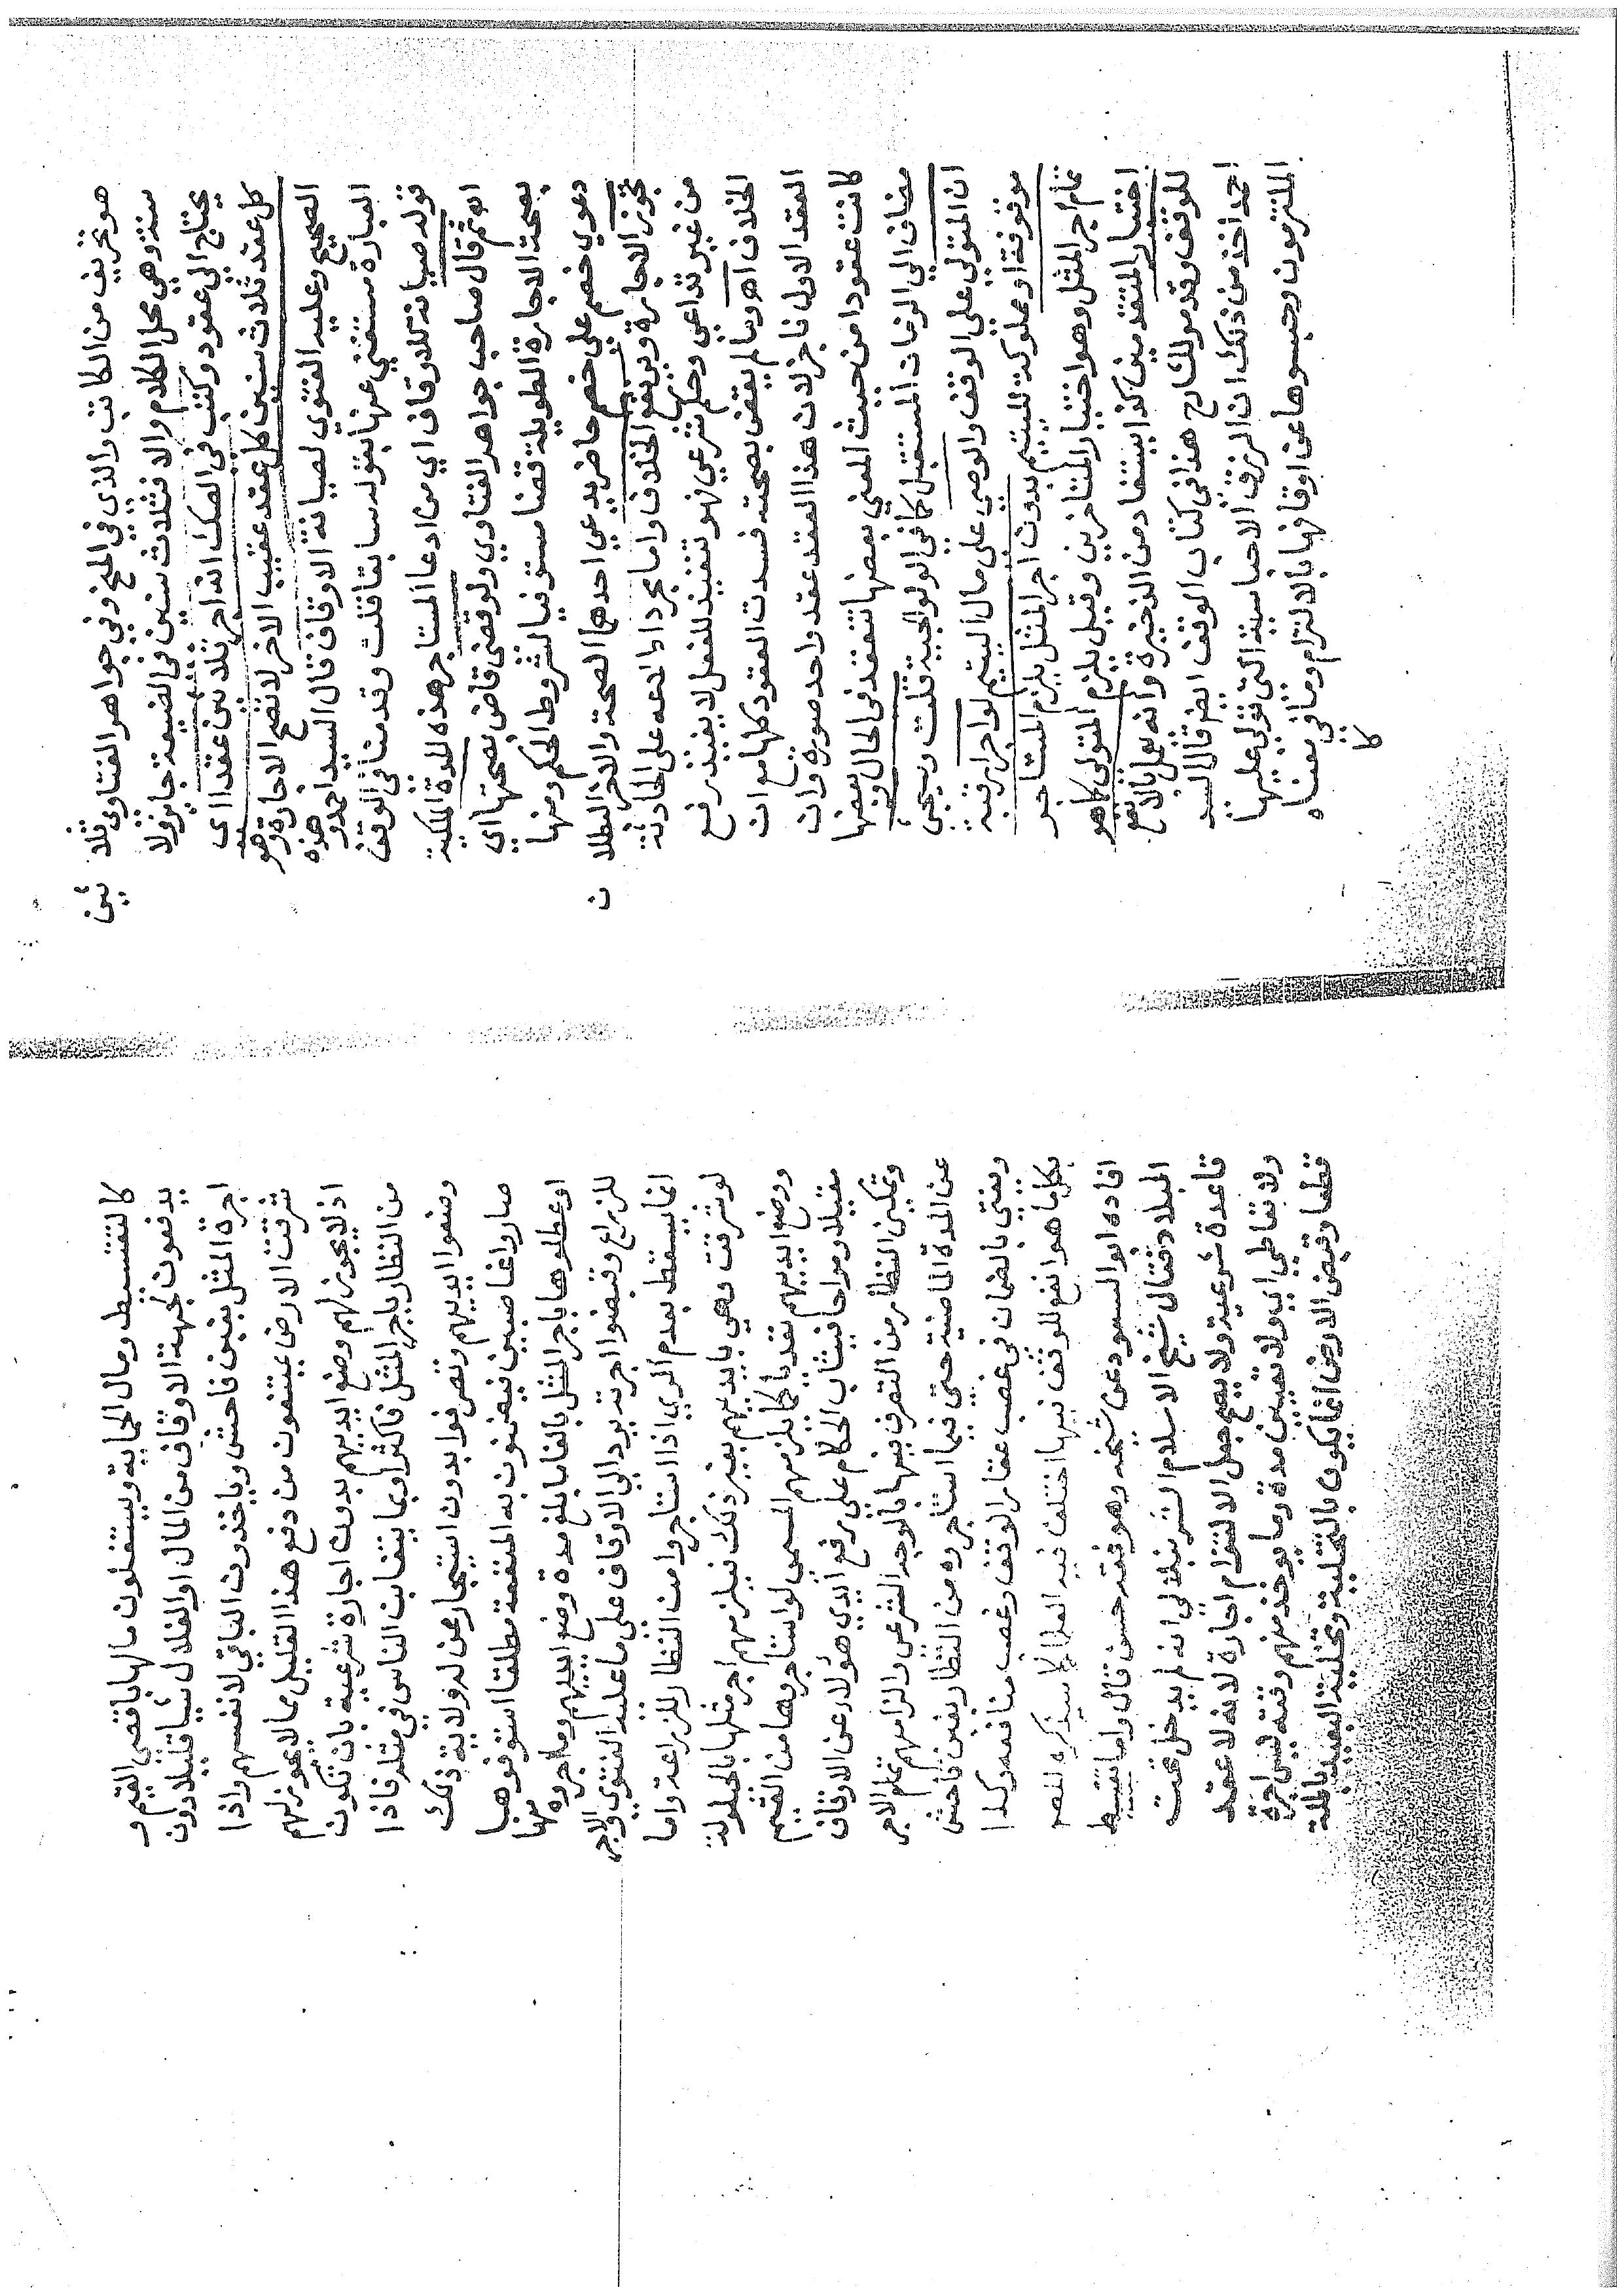 هو تحريف من الكاتب والذي في المنح وفي جواهر الفتاوى ثلا ثين
سنة وهي محل الكلام والا فثلاث سنين في الضيعة جايز ولا
يحتاج الي عقود وكتب في الصك انه اجر ثلاثين عقدا اي
كل عقد ثلاث سنين كل عقد عقيب الاخر لا تصح الاجارة وهو
الصحيح وعليه الفتوي لصيانة الاوقاف قال السيد احمد و هذه
العبارة مستغني عنها بقوله سابقا قلت وقدمنا في الوقف
قوله صيانة للاوقاف اي من ادعا المستاجر هذه المدة الملكية
اهـ ثم قال صاحب جواهر الفتاوي ولو قضي قاض بصحتها اي
بصحة الاجارة الطويلة قضا مستوفيا لشروط الحكم ومنها
دعوي خصم علي خصم حاضر يدعي احدهما الصحة والاخر البطلا ن
تجوز الاجارة ويرتفع الخلاف واما مجرد اطلاعه على الحادثة
من غير تداعي وحكم شرعي فهو تنفيذ للفعل لا يفيد رفع
الخلاف اهـ وما لم يقض بصحته فسدت العقود كلها مع ان
العقد الاول ناجز لان هذا العقد عقد واحد صورة وان
كانت عقودا من حيث المعني بعضها تنعقد في الحال وبعضها
مضاف الي الزمان المستقبل كما في الولوالجية قلت وسيجي
ان المتولي علي الوقف والوصي علي مال اليتيم لو اجرا برقبة
موقوفة او مملوكة لليتيم بدون اجر المثل يلزم المستاجر
تمام اجر المثل وهو اختيار المتاخرين وقيل يلزم المتولي كما هو
اختيار المتقدمين كذا يستفاد من الذخيرة وانه يعمل بالانفع
للوقف وقدمر للشارح هذا في كتاب الوقف انظر قال السيد
احمد اخذ من ذلك ان الرزق الاحباسية التي تولي عليها
الملتزمون وحبسوها عن اوقافها بالالتزام وما في معناه
كا
كالتقسيط ومال الحماية ويستغلون مالها باقصي القيم و
يدفعون لجهة الاوقاف من المال او الغلال شيا قليلا دون
اجرة المثل بغبن فاحش وياخذون الباقي لانفسهم واذا
شرقت الارض يمتنعون من دفع هذا القليل مما لا يجوز لهم
اذ لا يجوز لهم وضع ايديهم بدون اجارة شرعية بان تكون
من النظار باجر المثل فاكثر او بما يتغابن الناس في مثله فاذا
وضعوا ايديهم وتصرفوا بدون استيجار عن له ولاية ذلك
صاروا غاصبين فيضمنون به المنفعة مطلقا استوفوها
او عطلوها باجر المثل بالغا ما بلغ مدة وضع ايديهم وما اجروه منها
للزراع وقبضوا اجرته يرد الي الاوقاف علي ما عليه الفتوي والاجر
انما يسقط بعدم الري اذا استاجروا من النظار للزراعة واما
لو شرقت وهي بايديهم بغير ذلك فيلزمهم اجر مثلها بالحيلولة
ووضع ايديهم تعديا كما يلزمهم المسمي لو استاجروها من القيم
مقيلا ومراحا فيثاب الحكام علي رفع ايدي هولاء عن الاوقاف
وتمكين النظار من التصرف فيها بالوجه الشرعي والزامهم تمام الاجر
عن المدة الماضية حتي فيما استاجروه من النظار بغبن فاحش
ويفتي بالضمان في غصب عقار الوقف وغصب منافعه وكذا
بكل ما هو انفع للوقف فيما اختلف فيه العلما كما سيذكره المصـ
افاده ابو السعود عن شيخه وهو فقه حسن قال واما تقسيط
البلاد فقال شيخ الاسلام الشرنبلالي انه لم يدخل تحت
قاعدة شرعية ولا يصح جعل الالتزام اجارة لانه لا عقد
ولا تعاطي اي ولا تعيين مدة وما يوخذ منهم دفعة ليس اجرة
قطعا وقبض الارض انما يكون بالتخلية وتخلية البعيد باطلة